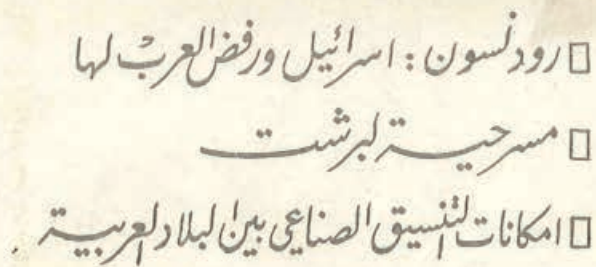 □ رودنسون : اسرائيل ورفض العرب لها
□ مسرحية لبرشت
□ امكانات التنسيق الصناعي بين البلاد العربية .